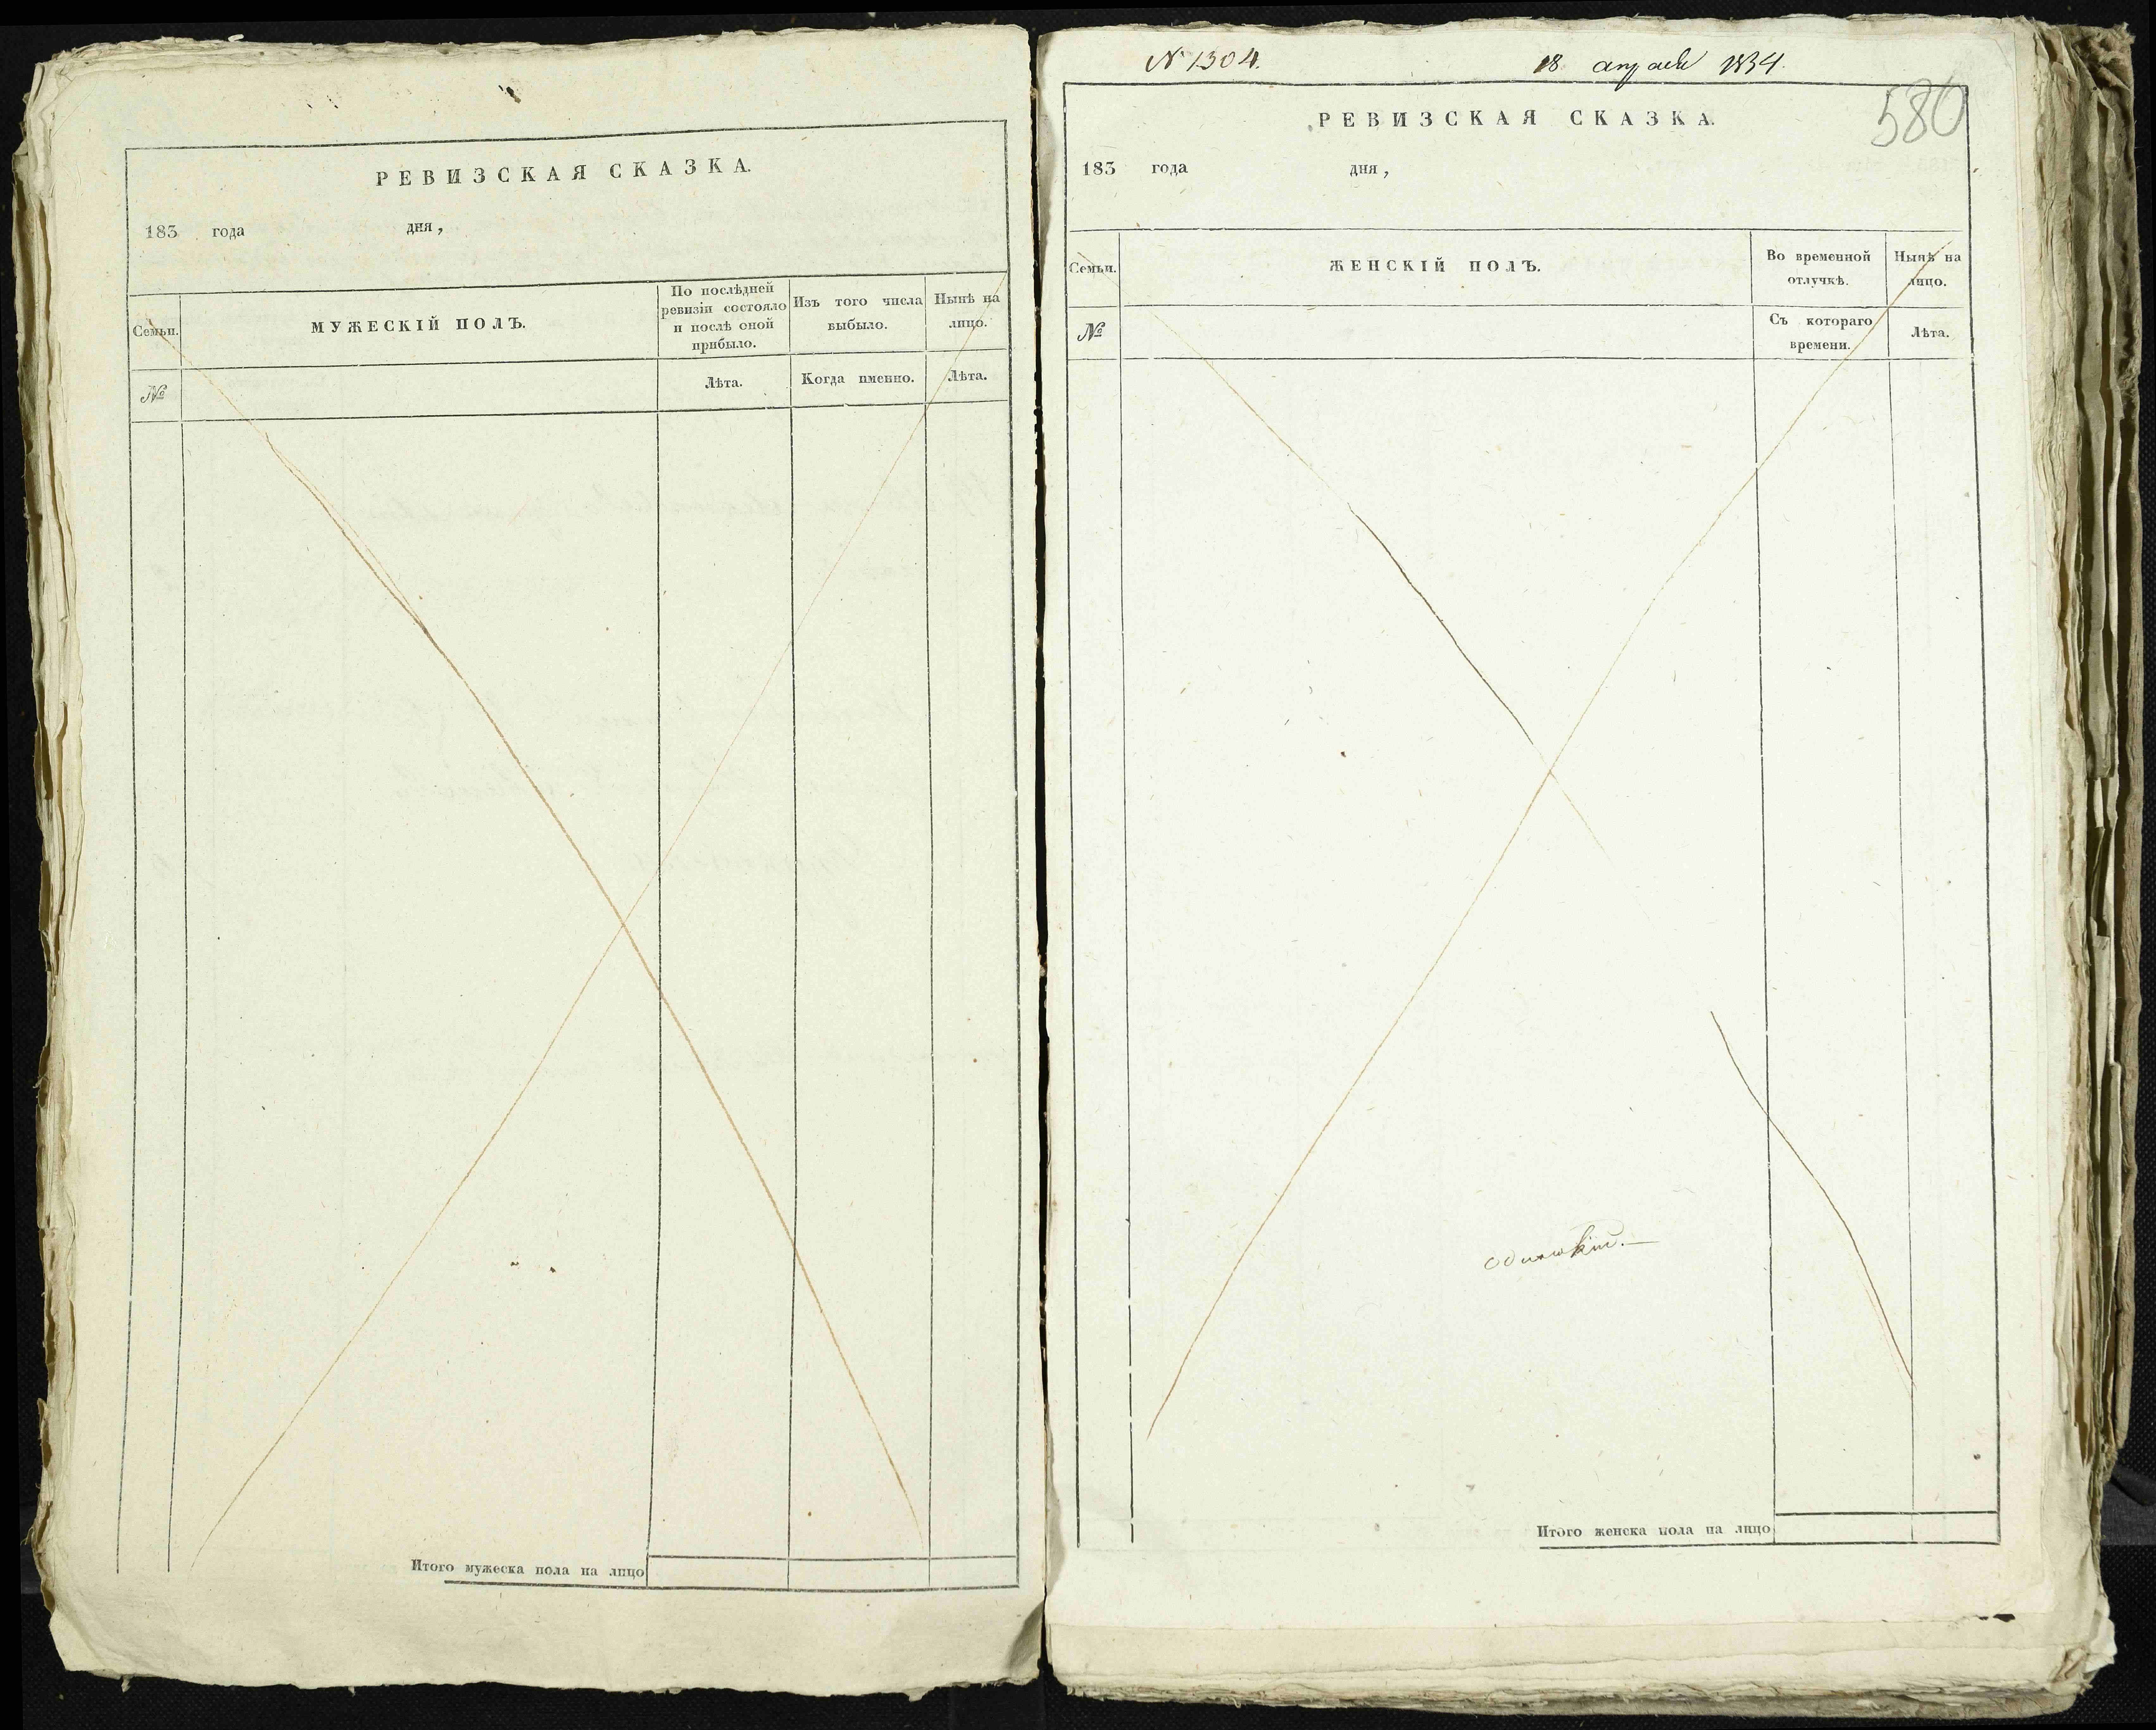 РЕВИЗСКАЯ СКАЗКА.
183 года дня,
Семьи.
МУЖЕСКІЙ ПОЛЪ.
По послѣдней ревизіи состояло и послѣ оной прибыло.
Изъ того числа выбыло.
Нынѣ на лицо.
№
Лѣта.
Когда именно.
Лѣта.
Итого мужеска пола на лицо
N 1304.
18 апреля 1834.
580
РЕВИЗСКАЯ СКАЗКА.
183 года дня,
Семьи.
ЖЕНСКІЙ ПОЛЪ.
Во временной отлучкѣ.
Нынѣ на лицо.
№
Съ котораго времени.
Лѣта.
Итого женска пола на лицо